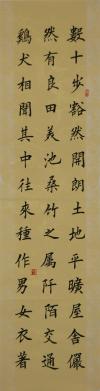 數十步豁然開朗土地平曠屋舍儼
然有良田美池桑竹之屬阡陌交通
鷄犬相聞其中往來種作男女衣著